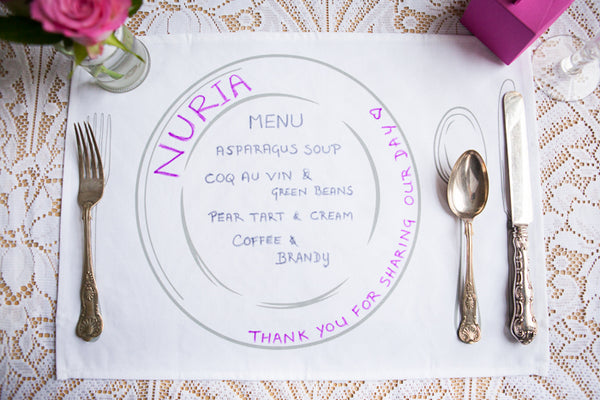 NURIA
MENU
ASPARAGUS SOUP
COQ AU VIN &
GREEN BEANS
PEAR TART & CREAM
COFFEE &
BRANDY
THANK YOU FOR SHARING OUR DAY ♡